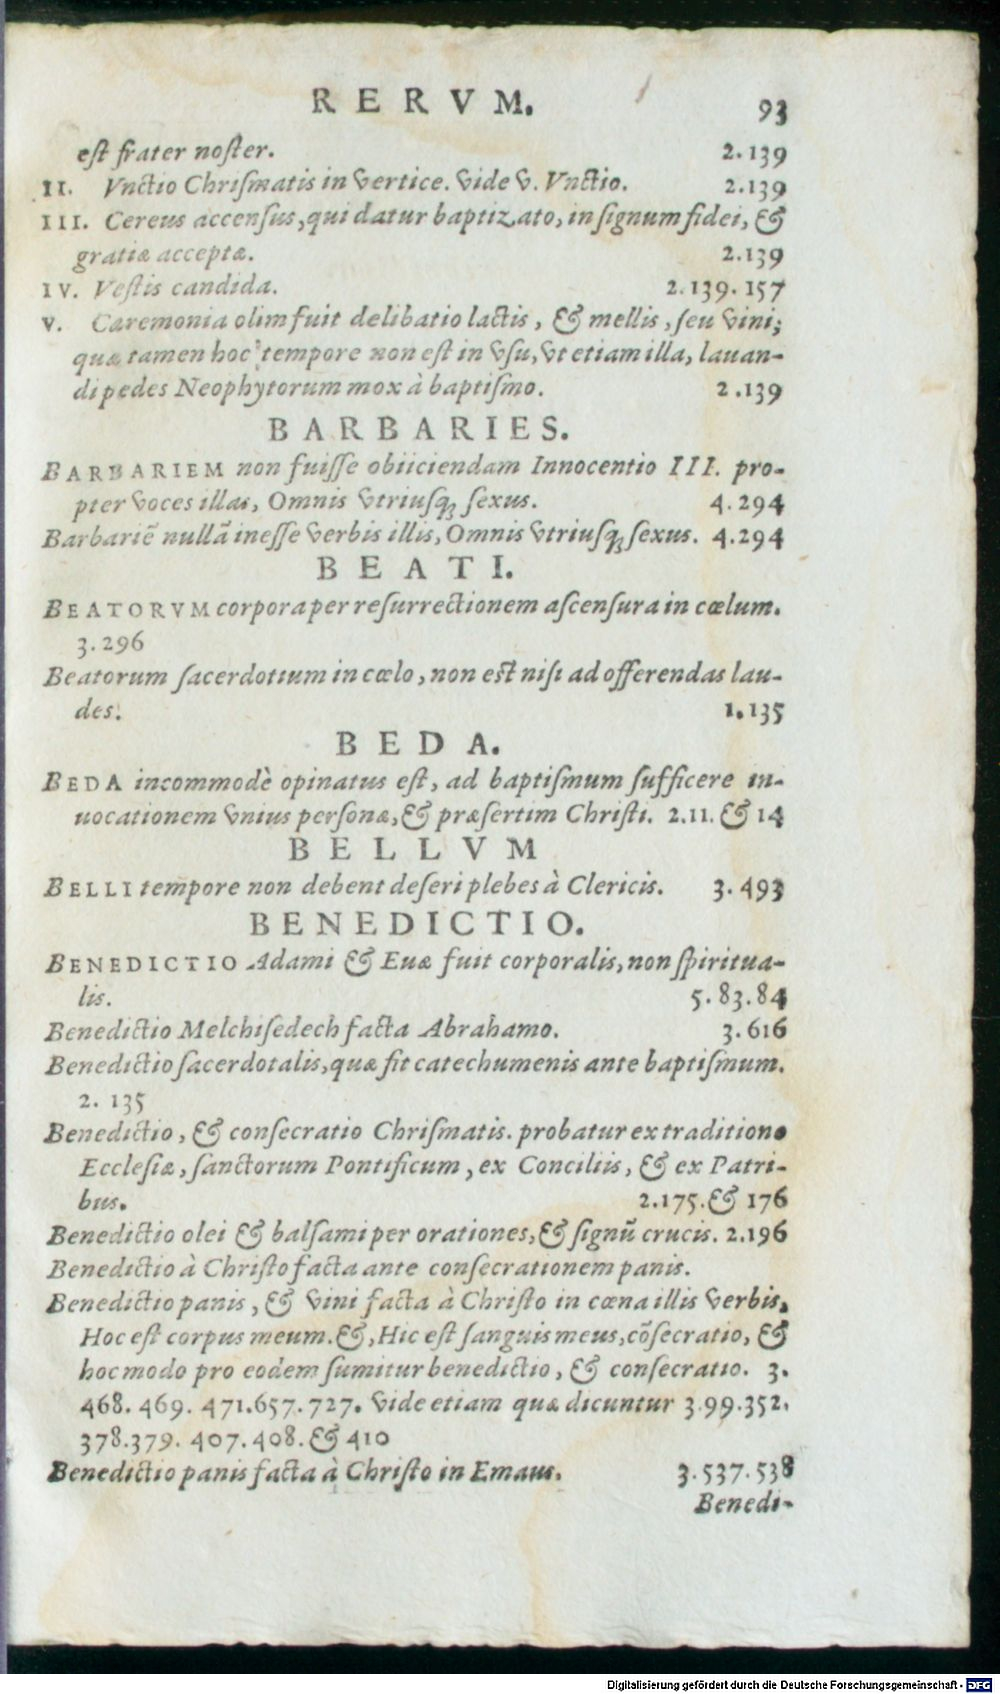 RERVM. 93
est frater noster. 2.139
II. Vnctio Chriſmatis in vertice. vide v. Vnctio. 2.139
III. Cereus accenſus, qui datur baptizato, in ſignum fidei, &
gratiæ acceptæ. 2.139
IV. Veſtis candida. 2.139.157
V. Cæremonia olim fuit delibatio lactis, & mellis, ſeu vini;
quæ tamen hoc tempore non eſt in vſu, vt etiam illa, lauan-
di pedes Neophytorum mox à baptiſmo. 2.139
BARBARIES.
BARBARIEM non fuiſſe obiiciendam Innocentio III. pro-
pter voces illas, Omnis vtriuſq; ſexus. 4.294
Barbariē nullā ineſſe verbis illis, Omnis vtriuſq; ſexus. 4.294
BEATI.
BEATORVM corpora per reſurrectionem aſcenſura in cœlum.
3.296
Beatorum ſacerdotium in cœlo, non eſt niſi ad offerendas lau-
des. 1.135
BEDA.
BEDA incommodè opinatus eſt, ad baptiſmum ſufficere in-
uocationem vnius perſonæ, & præſertim Chriſti. 2.11. & 14
BELLVM
BELLI tempore non debent deſeri plebes à Clericis. 3.493
BENEDICTIO.
BENEDICTIO Adami & Euæ fuit corporalis, non ſpiritua-
lis. 5.83.84
Benedictio Melchiſedech facta Abrahamo. 3.616
Benedictio ſacerdotalis, quæ fit catechumenis ante baptiſmum.
2.135
Benedictio, & conſecratio Chriſmatis. probatur ex traditione
Eccleſiæ, ſanctorum Pontificum, ex Conciliis, & ex Patri-
bus. 2.175. & 176
Benedictio olei & balſami per orationes, & ſignū crucis. 2.196
Benedictio à Chriſto facta ante conſecrationem panis.
Benedictio panis, & vini facta à Chriſto in cœna illis verbis,
Hoc eſt corpus meum. &, Hic eſt ſanguis meus, cōſecratio, &
hoc modo pro eodem ſumitur benedictio, & conſecratio. 3.
468. 469. 471.657.727. vide etiam quæ dicuntur 3.99.352.
378.379. 407.408. & 410
Benedictio panis facta à Chriſto in Emaus. 3.537.538
Benedi-
Digitalisierung gefördert durch die Deutsche Forschungsgemeinschaft - DFG